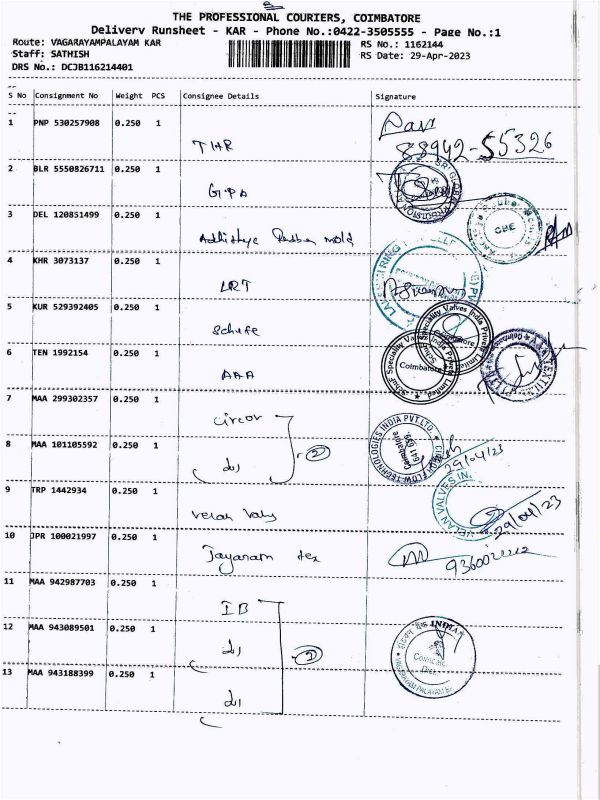 THE PROFESSIONAL COURIERS, COIMBATORE
Delivery Runsheet - KAR - Phone No.:0422-3505555 - Page No.:1
Route: VAGARAYAMPALAYAM KAR
RS No.: 1162144
Staff: SATHISH
RS Date: 29-Apr-2023
DRS No.: DCJB116214401
S No Consignment No Weight PCS Consignee Details Signature
1 PNP 530257908 0.250 1 THR
88942-55326
2 BLR 5550826711 0.250 1 GPA
3 DEL 120851499 0.250 1 Adhithya Rubber mold
CBE
4 KHR 3073137 0.250 1 LRT
5 KUR 529392405 0.250 1 Schufe
Speciality Valves India Private Limited
Coimbatore
6 TEN 1992154 0.250 1 AAA
7 MAA 299302357 0.250 1 circor
8 MAA 101105592 0.250 1 d1 2
FLOW TECHNOLOGIES INDIA PVT.LTD.
Coimbatore
29/04/23
9 TRP 1442934 0.250 1 velan valv
VELAN VALVES IN
29/04/23
10 JPR 100021997 0.250 1 Jayaram tex
11 MAA 942987703 0.250 1 IB
12 MAA 943089501 0.250 1 d1
INDIA
13 MAA 943188399 0.250 1 d1